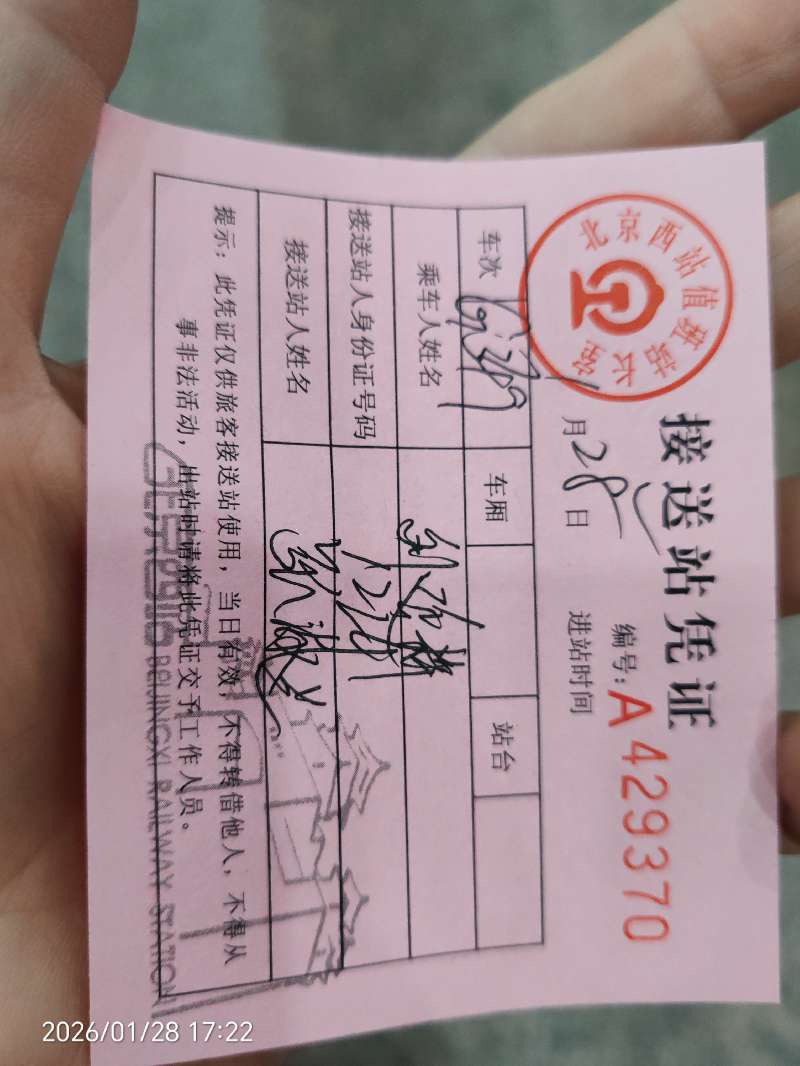 接送站凭证
北京西站值班站长签
编号：A429370
1月28日 进站时间
车次 G309 车厢 站台
乘车人姓名
接送站人身份证号码
接送站人姓名
提示：此凭证仅供旅客接送站使用，当日有效，不得转借他人，不得从
事非法活动，出站时请将此凭证交予工作人员。
北京西站 BEIJINGXI RAILWAY STATION
2026/01/28 17:22